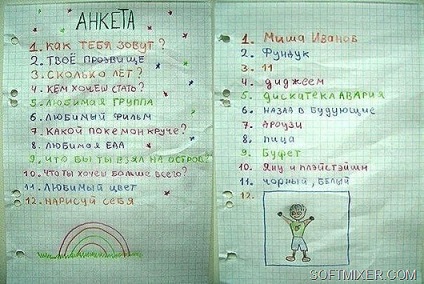 АНКЕТА
1. КАК ТЕБЯ ЗОВУТ?
2. ТВОЁ ПРОЗВИЩЕ
3. СКОЛЬКО ЛЕТ?
4. КЕМ ХОЧЕШ СТАТЬ?
5. ЛЮБИМАЯ ГРУППА
6. ЛЮБИМЫЙ ФИЛЬМ
7. КАКОЙ ПОКЕМОН КРУЧЕ?
8. ЛЮБИМАЯ ЕДА
9. ЧТО БЫ ТЫ ВЗЯЛ НА ОСТРОВ?
10. ЧТО ТЫ ХОЧЕШ БОЛЬШЕ ВСЕГО?
11. ЛЮБИМЫЙ ЦВЕТ
12. НАРИСУЙ СЕБЯ
1. Миша Иванов
2. Фундук
3. 11
4. диджеем
5. дискатека авария
6. назад в будующие
7. дроузи
8. пица
9. Буфет
10. Яну и плэйстэйшн
11. чорный, белый
12.
SOFTMIXER.COM